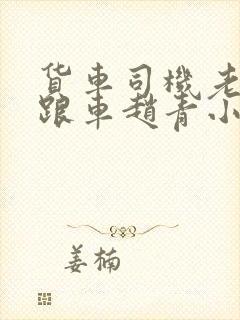 货车司機老
跟車趙青小
姜楠